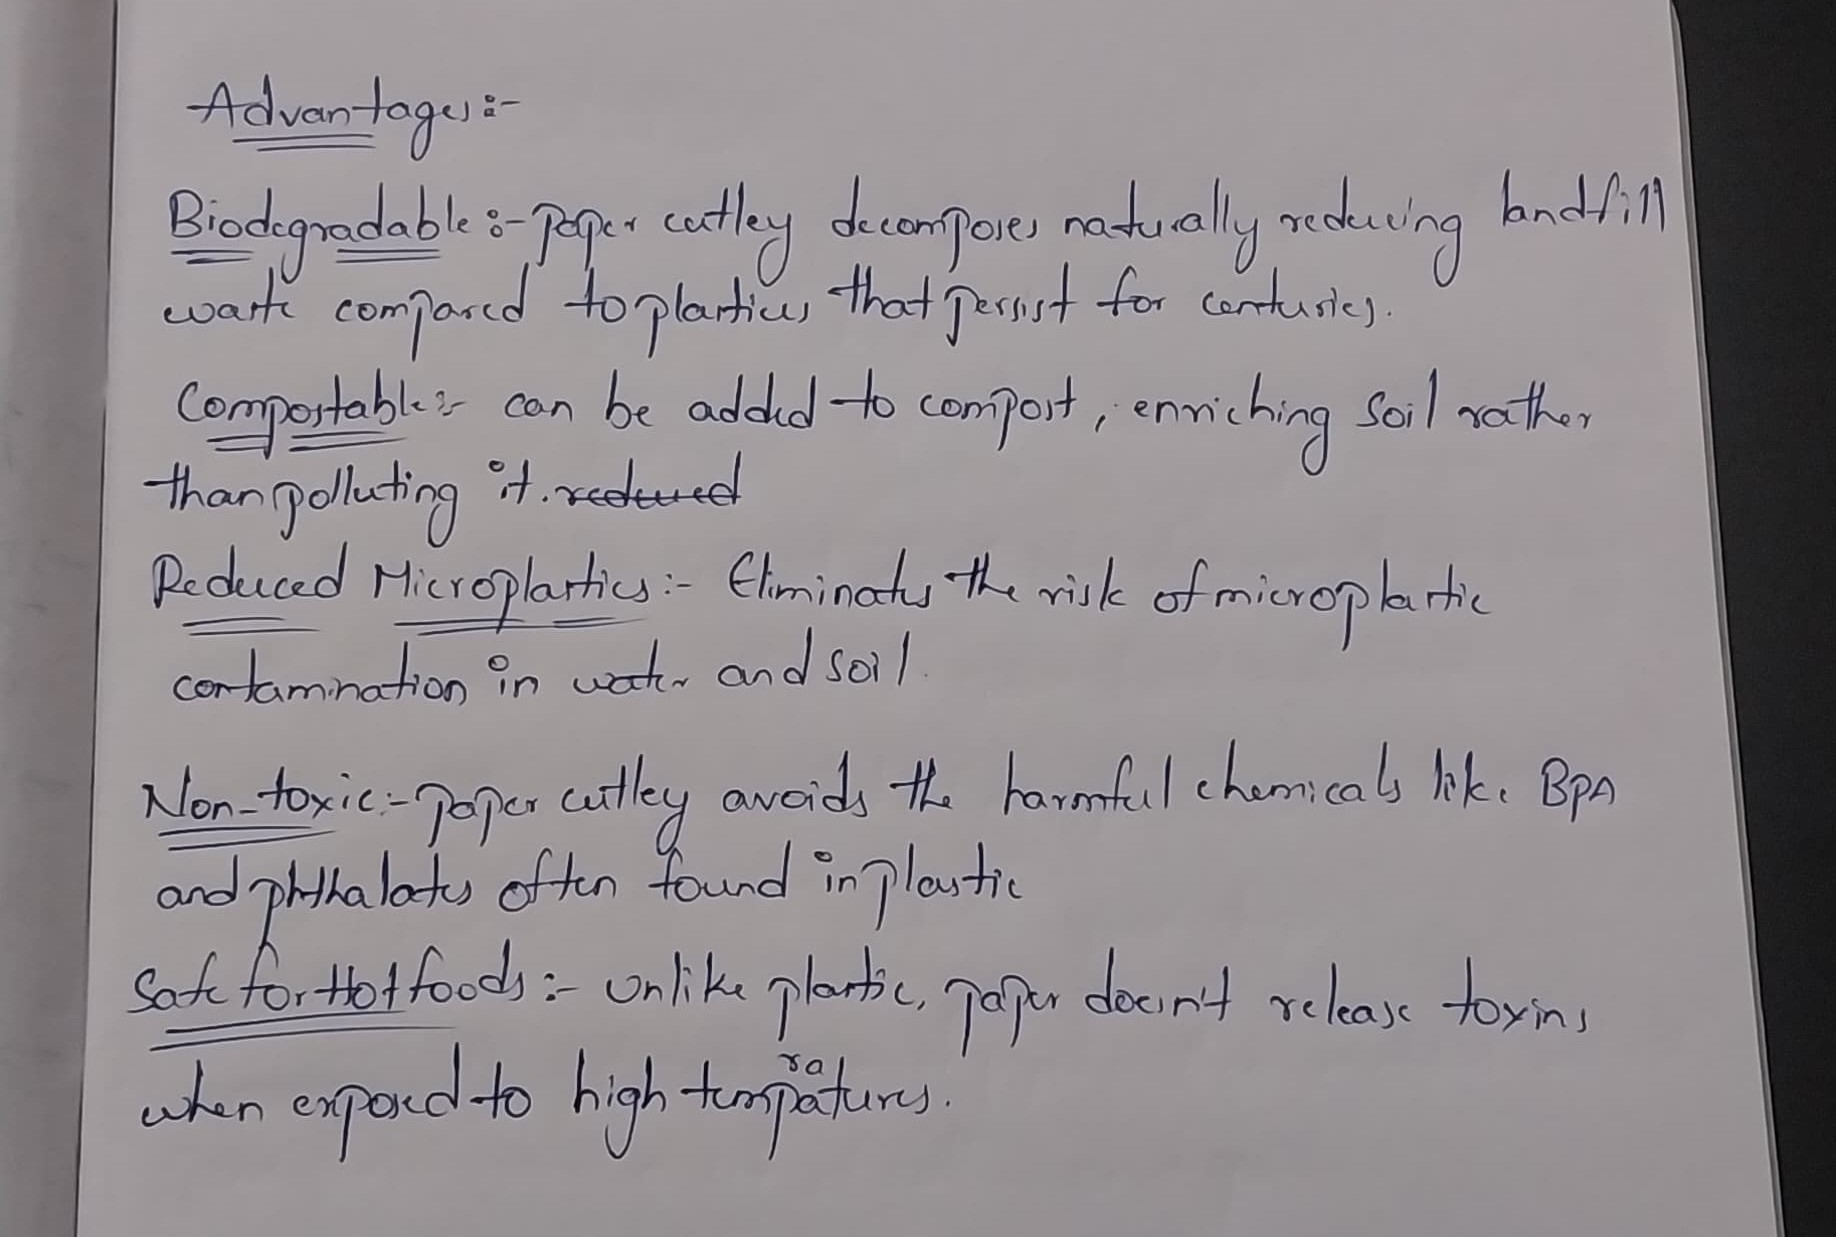 Advantages:-
Biodegradable :- Paper cutley decomposes naturally reducing landfill
waste compared to plasticus that persist for centuries.
Compostable:- can be added to compost, enriching soil rather
than polluting it. reduced
Reduced Microplastics:- Eliminates the risk of microplastic
contamination in water and soil.
Non-toxic:- paper cutley avoids the harmful chemicals like BPA
and phthalates often found in plastic
Safe for Hot foods :- Unlike plastic, paper doesn't release toxins
when exposed to high tempratures.